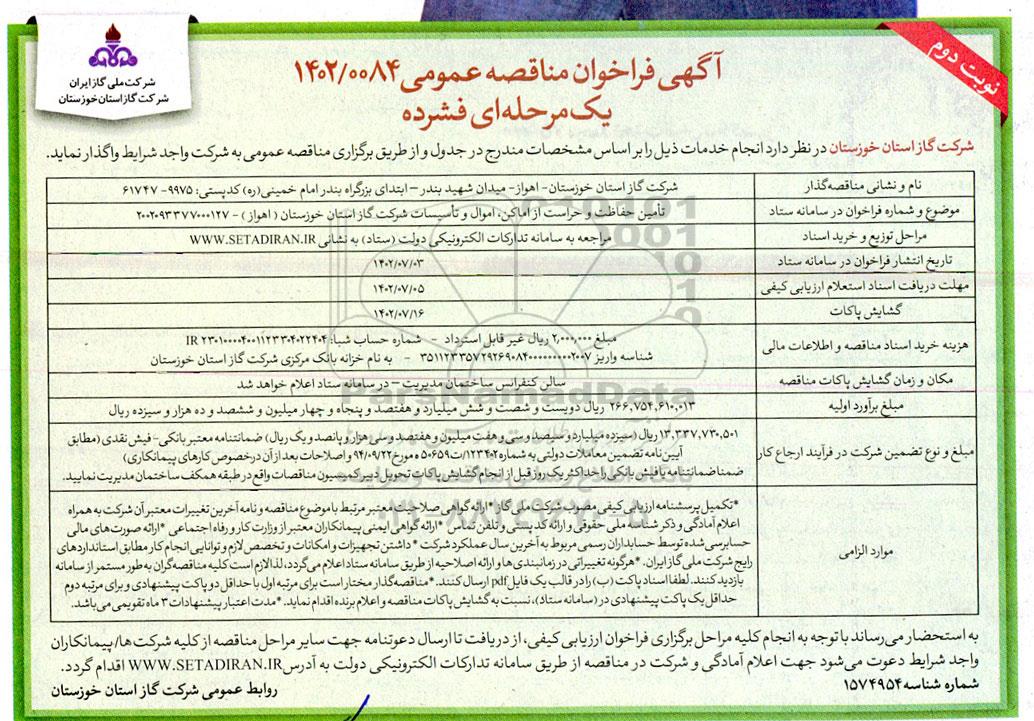 نوبت دوم
شرکت ملی گاز ایران
شرکت گاز استان خوزستان
آگهی فراخوان مناقصه عمومی ۱۴۰۲/۰۰۸۴
یک‌مرحله‌ای فشرده
شرکت گاز استان خوزستان در نظر دارد انجام خدمات ذیل را بر اساس مشخصات مندرج در جدول و از طریق برگزاری مناقصه عمومی به شرکت واجد شرایط واگذار نماید.
نام و نشانی مناقصه‌گذار
شرکت گاز استان خوزستان- اهواز- میدان شهید بندر – ابتدای بزرگراه بندر امام خمینی(ره) کدپستی: ۹۹۷۵- ۶۱۷۴۷
موضوع و شماره فراخوان در سامانه ستاد
تأمین حفاظت و حراست از اماکن، اموال و تأسیسات شرکت گاز استان خوزستان ( اهواز ) - ۲۰۰۲۰۹۳۳۷۷۰۰۰۱۲۷
مراحل توزیع و خرید اسناد
مراجعه به سامانه تدارکات الکترونیکی دولت (ستاد) به نشانی WWW.SETADIRAN.IR
تاریخ انتشار فراخوان در سامانه ستاد
۱۴۰۲/۰۷/۰۳
مهلت دریافت اسناد استعلام ارزیابی کیفی
۱۴۰۲/۰۷/۰۵
گشایش پاکات
۱۴۰۲/۰۷/۱۶
هزینه خرید اسناد مناقصه و اطلاعات مالی
مبلغ ۲,۰۰۰,۰۰۰ ریال غیر قابل استرداد - شماره حساب شبا: IR ۲۳۰۱۰۰۰۰۴۰۰۱۱۲۳۳۰۴۰۲۲۴۰۴
شناسه واریز ۳۵۱۱۲۳۳۵۷۲۹۲۶۹۰۸۴۰۰۰۰۰۰۰۰۰۲۰۰۷ - به نام خزانه بانک مرکزی شرکت گاز استان خوزستان
مکان و زمان گشایش پاکات مناقصه
سالن کنفرانس ساختمان مدیریت – در سامانه ستاد اعلام خواهد شد
مبلغ برآورد اولیه
۲۶۶,۷۵۴,۶۱۰,۰۱۳ ریال دویست و شصت و شش میلیارد و هفتصد و پنجاه و چهار میلیون و ششصد و ده هزار و سیزده ریال
مبلغ و نوع تضمین شرکت در فرآیند ارجاع کار
۱۳,۳۳۷,۷۳۰,۵۰۱ ریال (سیزده میلیارد و سیصد و سی و هفت میلیون و هفتصد و سی هزار و پانصد و یک ریال) ضمانتنامه معتبر بانکی- فیش نقدی (مطابق
آیین‌نامه تضمین معاملات دولتی به شماره ۱۲۳۴۰۲/ت۵۰۶۵۹ ه مورخ ۹۴/۰۹/۲۲ و اصلاحات بعد از آن درخصوص کارهای پیمانکاری)
ضمنا ضمانتنامه یا فیش بانکی را حداکثر یک روز قبل از انجام گشایش پاکات تحویل دبیر کمیسیون مناقصات واقع در طبقه همکف ساختمان مدیریت نمایید.
موارد الزامی
*تکمیل پرسشنامه ارزیابی کیفی مصوب شرکت ملی گاز *ارائه گواهی صلاحیت معتبر مرتبط با موضوع مناقصه و نامه آخرین تغییرات معتبر آن شرکت به همراه
اعلام آمادگی و ذکر شناسه ملی حقوقی و ارائه کد پستی و تلفن تماس *ارائه گواهی ایمنی پیمانکاران معتبر از وزارت کار و رفاه اجتماعی *ارائه صورت‌های مالی
حسابرسی شده توسط حسابداران رسمی مربوط به آخرین سال عملکرد شرکت * داشتن تجهیزات و امکانات و تخصص لازم و توانایی انجام کار مطابق استانداردهای
رایج شرکت ملی گاز ایران. *هرگونه تغییراتی در زمانبندی‌ها و ارائه اصلاحیه از طریق سامانه ستاد اعلام می‌گردد، لذا لازم است کلیه مناقصه‌گران به‌طور مستمر از سامانه
بازدید کنند. لطفا اسناد پاکت (ب) را در قالب یک فایل pdf ارسال کنند. *مناقصه‌گذار مختار است برای مرتبه اول با حداقل دو پاکت پیشنهادی و برای مرتبه دوم
حداقل یک پاکت پیشنهادی در (سامانه ستاد)، نسبت به گشایش پاکات مناقصه و اعلام برنده اقدام نماید. *مدت اعتبار پیشنهادات ۳ ماه تقویمی می‌باشد.
به استحضار می‌رساند با توجه به انجام کلیه مراحل برگزاری فراخوان ارزیابی کیفی، از دریافت تا ارسال دعوتنامه جهت سایر مراحل مناقصه از کلیه شرکت ها/ پیمانکاران
واجد شرایط دعوت می‌شود جهت اعلام آمادگی و شرکت در مناقصه از طریق سامانه تدارکات الکترونیکی دولت به آدرس WWW.SETADIRAN.IR اقدام گردد.
شماره شناسه ۱۵۷۴۹۵۴
روابط عمومی شرکت گاز استان خوزستان
ParsNamadData